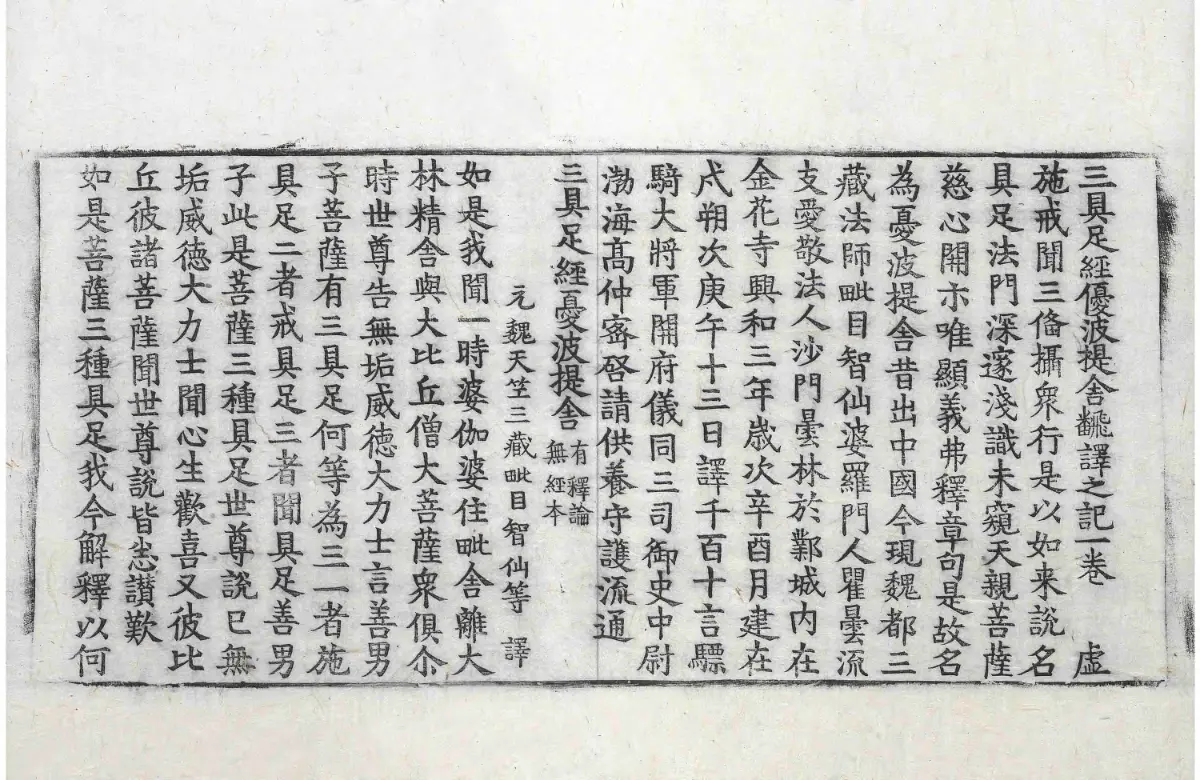 三具足經優波提舍飜譯之記一卷 虛
施戒聞三俻攝衆行是以如来說名
具足法門深邃淺識未窺天親菩薩
慈心開示唯顯義弗釋章句是故名
為憂波提舍昔出中國今現魏都三
藏法師毗目智仙婆羅門人瞿曇流
支愛敬法人沙門曇林於鄴城内在
金花寺興和三年歲次辛酉月建在
戌朔次庚午十三日譯千百十言驃
騎大將軍開府儀同三司御史中尉
渤海髙仲密啓請供養守護流通
三具足經憂波提舍 有釋論無經本
元魏天竺三藏毗目智仙等 譯
如是我聞一時婆伽婆住毗舍離大
林精舍與大比丘僧大菩薩衆俱尒
時世尊告無垢威德大力士言善男
子菩薩有三具足何等為三一者施
具足二者戒具足三者聞具足善男
子此是菩薩三種具足世尊說已無
垢威德大力士聞心生歡喜又彼比
丘彼諸菩薩聞世尊說皆悉讃歎
如是菩薩三種具足我今解釋以何